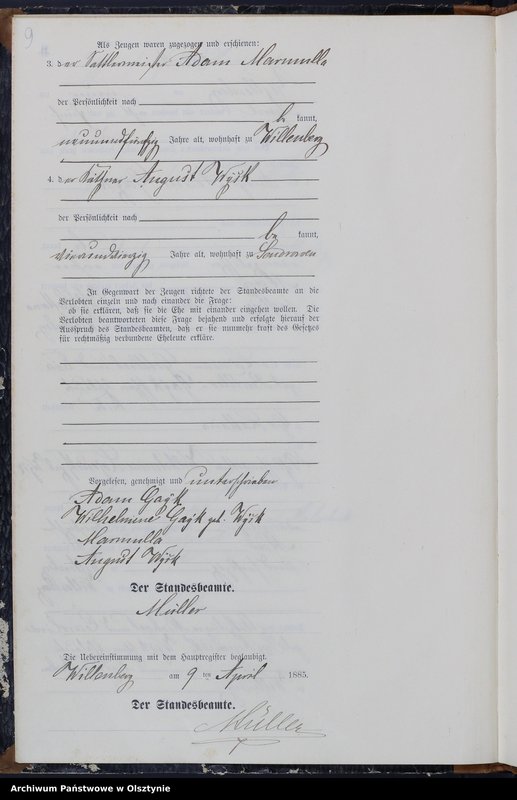 9
Als Zeugen waren zugezogen und erschienen:
3. der Sattlermeister Adam Marmulla
der Persönlichkeit nach
be kannt,
neunundfünfzig Jahre alt, wohnhaft zu Willenberg
4. der Käthner August Wysk
der Persönlichkeit nach
be kannt,
vierundvierzig Jahre alt, wohnhaft zu
In Gegenwart der Zeugen richtete der Standesbeamte an die
Verlobten einzeln und nach einander die Frage:
ob sie erklären, daß sie die Ehe mit einander eingehen wollen. Die
Verlobten beantworteten diese Frage bejahend und erfolgte hierauf der
Ausspruch des Standesbeamten, daß er sie nunmehr kraft des Gesetzes
für rechtmäßig verbundene Eheleute erkläre.
Vorgelesen, genehmigt und unterschrieben
Adam Gayk
Wilhelmine Gayk geb. Wysk
Marmulla
August Wysk
Der Standesbeamte.
Müller
Die Uebereinstimmung mit dem Hauptregister beglaubigt.
Willenberg am 9 ten April 1885.
Der Standesbeamte.
Müller
Archiwum Państwowe w Olsztynie